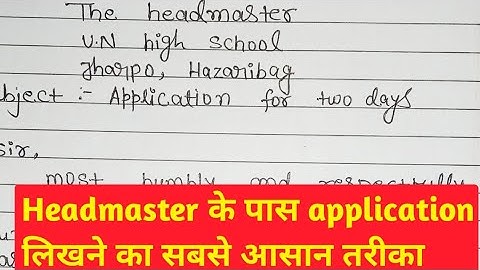 The headmaster
U.N high school
Jharpo, Hazaribag
bject :- Application for two days
sir,
most humbly and respectfully
Headmaster के पास application
लिखने का सबसे आसान तरीका